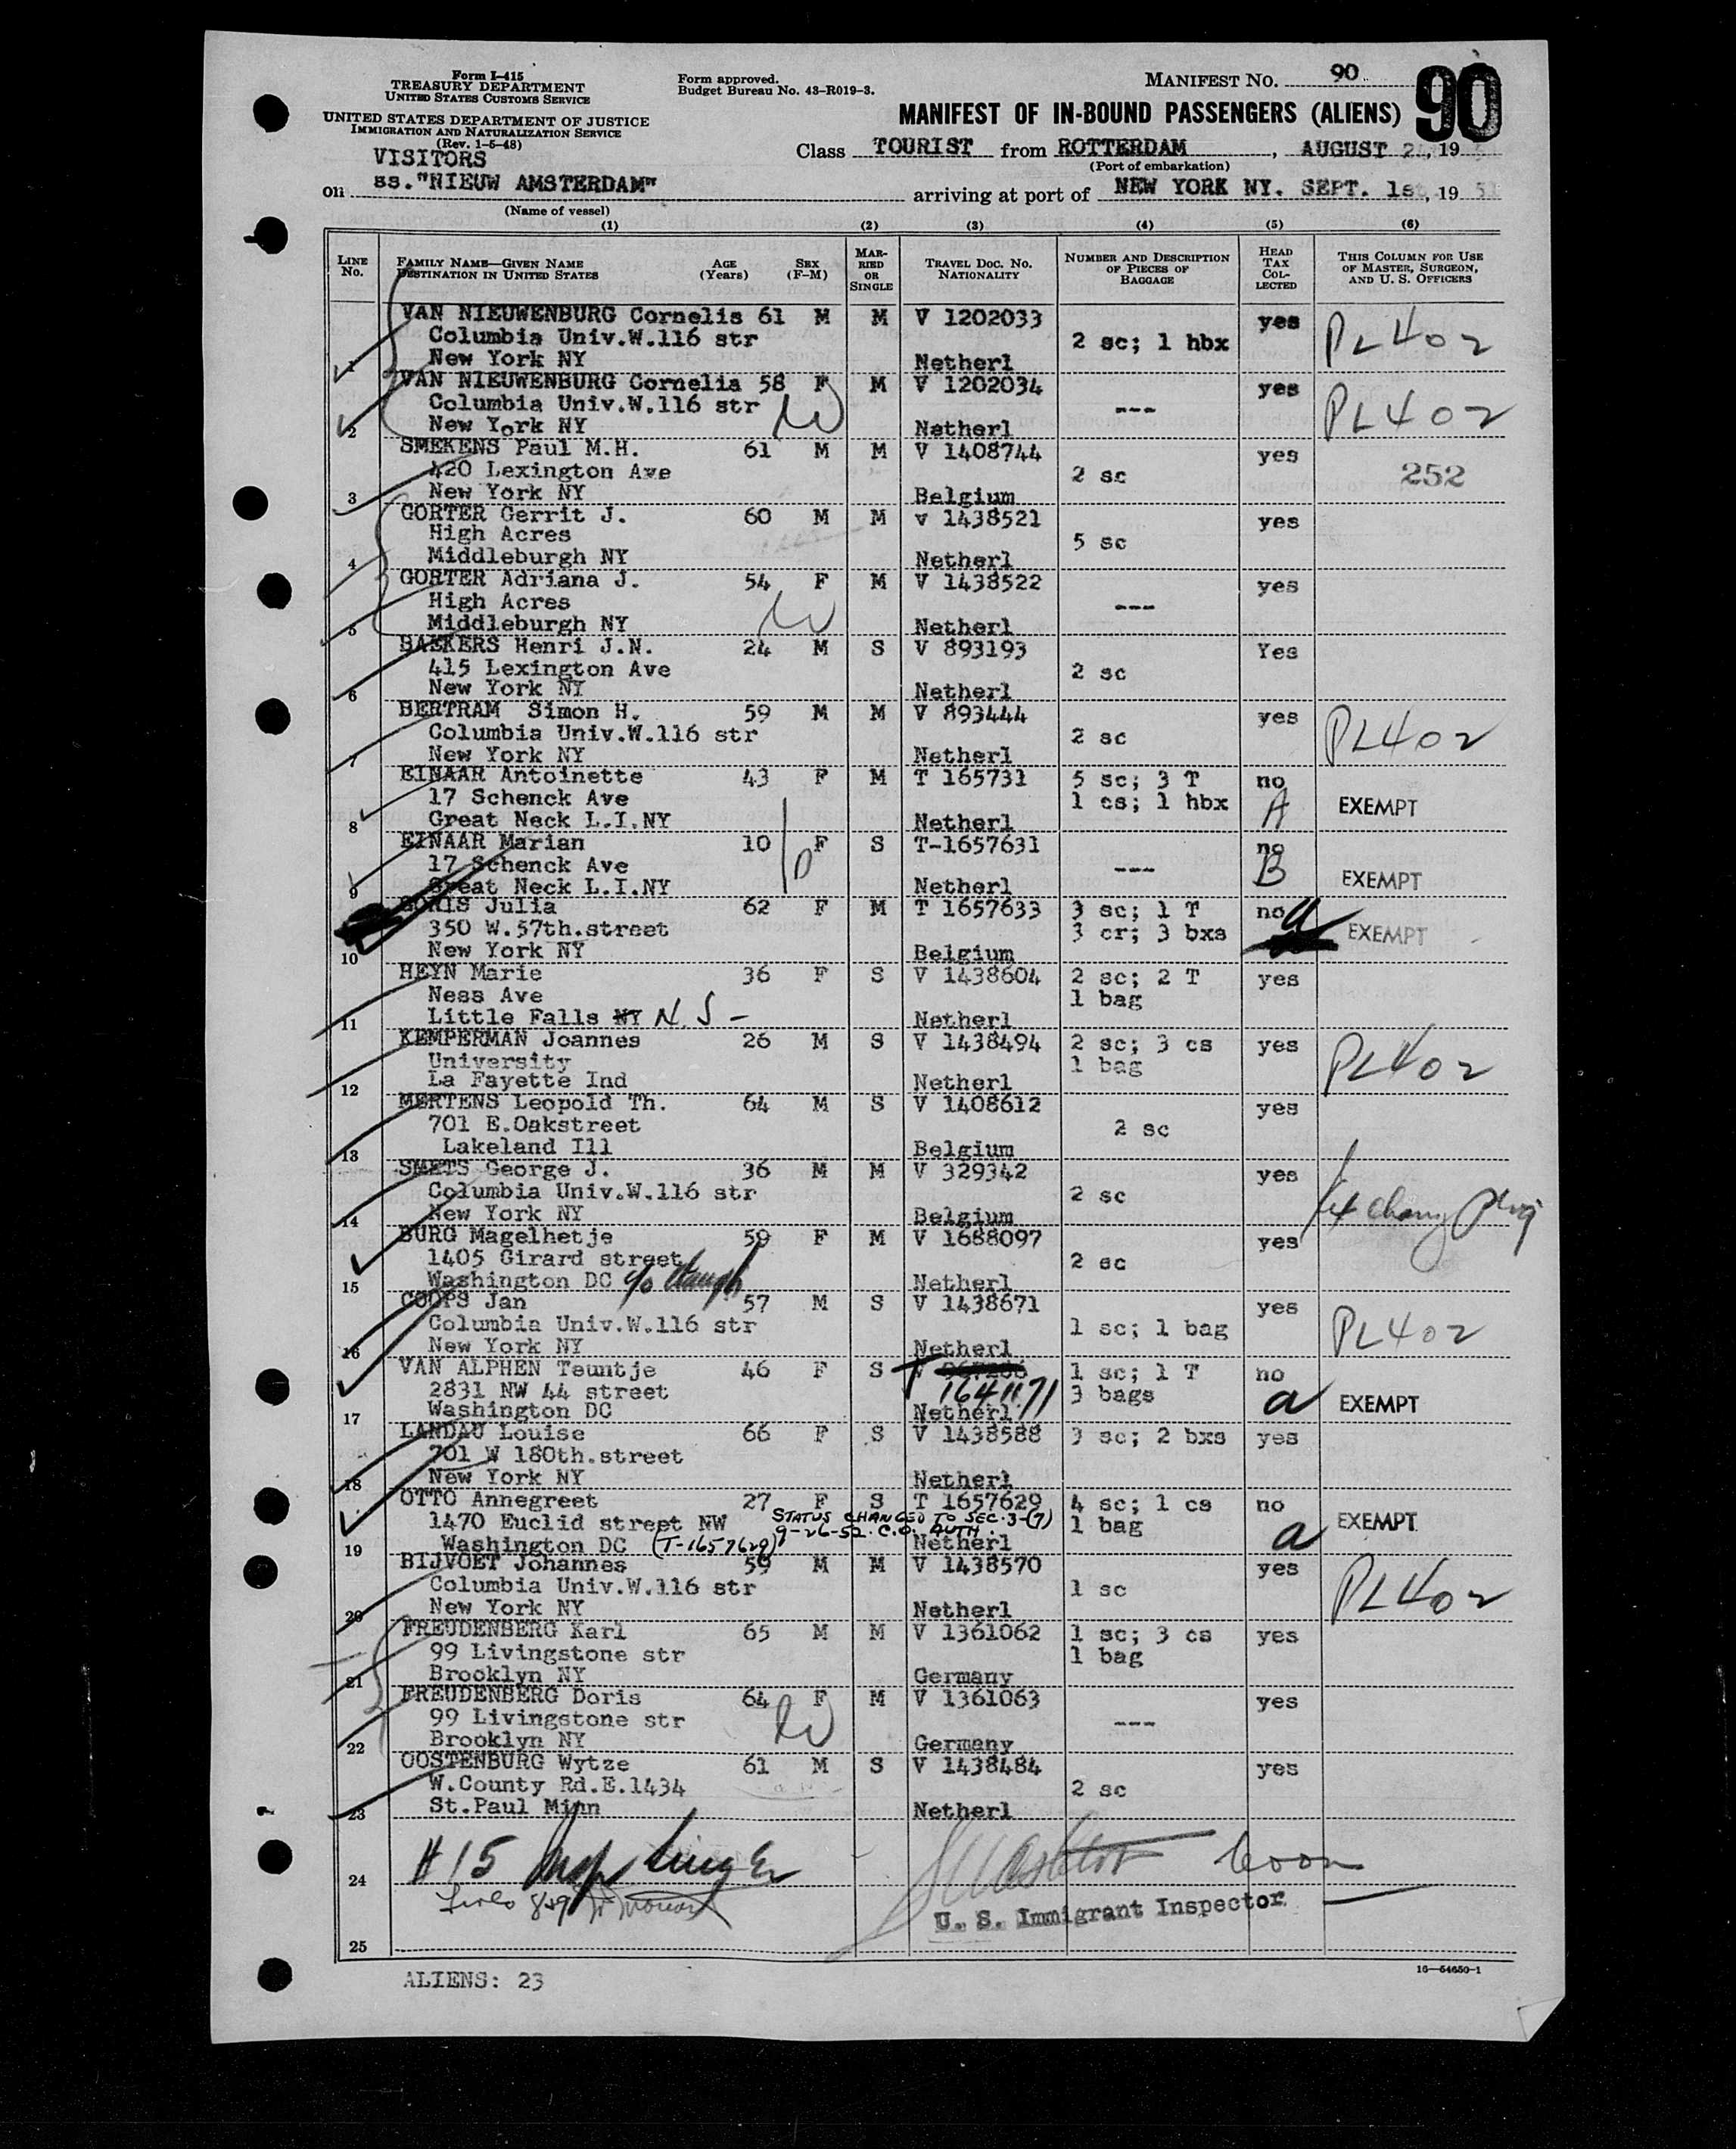 Form I-415
TREASURY DEPARTMENT
UNITED STATES CUSTOMS SERVICE
UNITED STATES DEPARTMENT OF JUSTICE
IMMIGRATION AND NATURALIZATION SERVICE
(Rev. 1-5-48)
Form approved.
Budget Bureau No. 43-R019-3.
MANIFEST No. 90
90
MANIFEST OF IN-BOUND PASSENGERS (ALIENS)
VISITORS
Class TOURIST from ROTTERDAM, AUGUST 2, 19
(Port of embarkation)
on ss."NIEUW AMSTERDAM" arriving at port of NEW YORK NY. SEPT. 1st, 19 51
(Name of vessel)
(1) (2) (3) (4) (5) (6)
LINE No.
FAMILY NAME—GIVEN NAME DESTINATION IN UNITED STATES
AGE (Years)
SEX (F-M)
MARRIED OR SINGLE
TRAVEL DOC. NO. NATIONALITY
NUMBER AND DESCRIPTION OF PIECES OF BAGGAGE
HEAD TAX COLLECTED
THIS COLUMN FOR USE OF MASTER, SURGEON, AND U. S. OFFICERS
VAN NIEUWENBURG Cornelis 61 M M V 1202033 yes
Columbia Univ.W.116 str 2 sc; 1 hbx PL402
1 New York NY Netherl
VAN NIEUWENBURG Cornelia 58 F M V 1202034 yes
Columbia Univ.W.116 str --- PL402
2 New York NY Netherl
SMEKENS Paul M.H. 61 M M V 1408744 yes
420 Lexington Ave 2 sc 252
3 New York NY Belgium
GORTER Gerrit J. 60 M M v 1438521 yes
High Acres 5 sc
4 Middleburgh NY Netherl
GORTER Adriana J. 54 F M V 1438522 yes
High Acres ---
5 Middleburgh NY Netherl
BAKKERS Henri J.N. 24 M S V 893193 Yes
415 Lexington Ave 2 sc
6 New York NY Netherl
BERTRAM Simon H. 59 M M V 893444 yes
Columbia Univ.W.116 str 2 sc PL402
7 New York NY Netherl
EINAAR Antoinette 43 F M T 165731 5 sc; 3 T no
17 Schenck Ave 1 cs; 1 hbx A EXEMPT
8 Great Neck L.I.NY Netherl
EINAAR Marian 10 F S T-1657631 no
17 Schenck Ave --- B EXEMPT
9 Great Neck L.I.NY Netherl
GORIS Julia 62 F M T 1657633 3 sc; 1 T no a
350 W.57th.street 3 cr; 3 bxs EXEMPT
10 New York NY Belgium
HEYN Marie 36 F S V 1438604 2 sc; 2 T yes
Ness Ave 1 bag
11 Little Falls NY N.J - Netherl
KEMPERMAN Joannes 26 M S V 1438494 2 sc; 3 cs yes
University 1 bag PL402
12 La Fayette Ind Netherl
MERTENS Leopold Th. 64 M S V 1408612 yes
701 E.Oakstreet 2 sc
13 Lakeland Ill Belgium
SMETS George J. 36 M M V 329342 yes
Columbia Univ.W.116 str 2 sc
14 New York NY Belgium
BURG Magelhetje 59 F M V 1688097 yes
1405 Girard street 2 sc
15 Washington DC c/o Netherl
COOPS Jan 57 M S V 1438671 yes
Columbia Univ.W.116 str 1 sc; 1 bag PL402
16 New York NY Netherl
VAN ALPHEN Teuntje 46 F S T 1 sc; 1 T no
2831 NW 44 street 1641171 3 bags a EXEMPT
17 Washington DC Netherl
LANDAU Louise 66 F S V 1438588 3 sc; 2 bxs yes
701 W 180th.street
18 New York NY Netherl
OTTO Annegreet 27 F S T 1657629 4 sc; 1 cs no
1470 Euclid street NW STATUS CHANGED TO SEC. 3-(7) 1 bag a EXEMPT
9-26-52. C.O. AUTH.
19 Washington DC (T-1657629) Netherl
BIJVOET Johannes 59 M M V 1438570 yes
Columbia Univ.W.116 str 1 sc PL402
20 New York NY Netherl
FREUDENBERG Karl 65 M M V 1361062 1 sc; 3 cs yes
99 Livingstone str 1 bag
21 Brooklyn NY Germany
FREUDENBERG Doris 64 F M V 1361063 yes
99 Livingstone str ---
22 Brooklyn NY Germany
OOSTENBURG Wytze 61 M S V 1438484 yes
W.County Rd.E.1434 2 sc
23 St.Paul Minn Netherl
24 #15 Insp
U. S. Immigrant Inspector
25
ALIENS: 23
16—54650-1